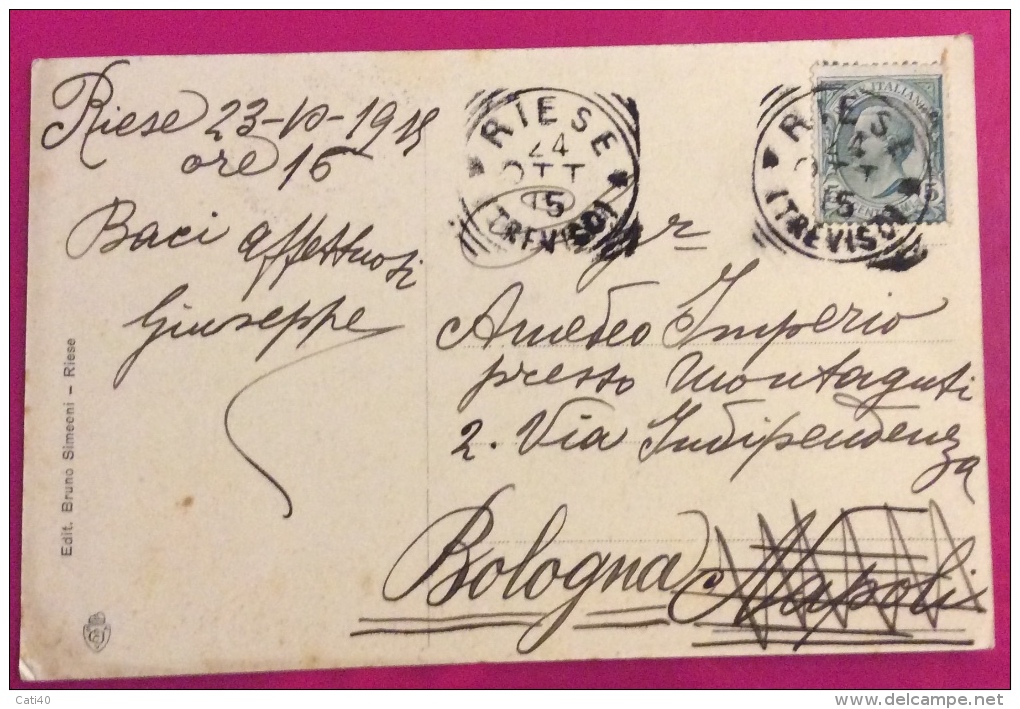 Riese 23-10-1915
ore 16
Baci affettuosi
Giuseppe
Edit. Bruno Simeoni - Riese
RIESE
24
OTT
15
(TREVISO)
RIESE
24
OTT
15
(TREVISO)
Sigr
Amedeo Imperio
presso Montaguti
2. Via Indipendenza
Bologna Napoli
Cati40
www.delcampe.net